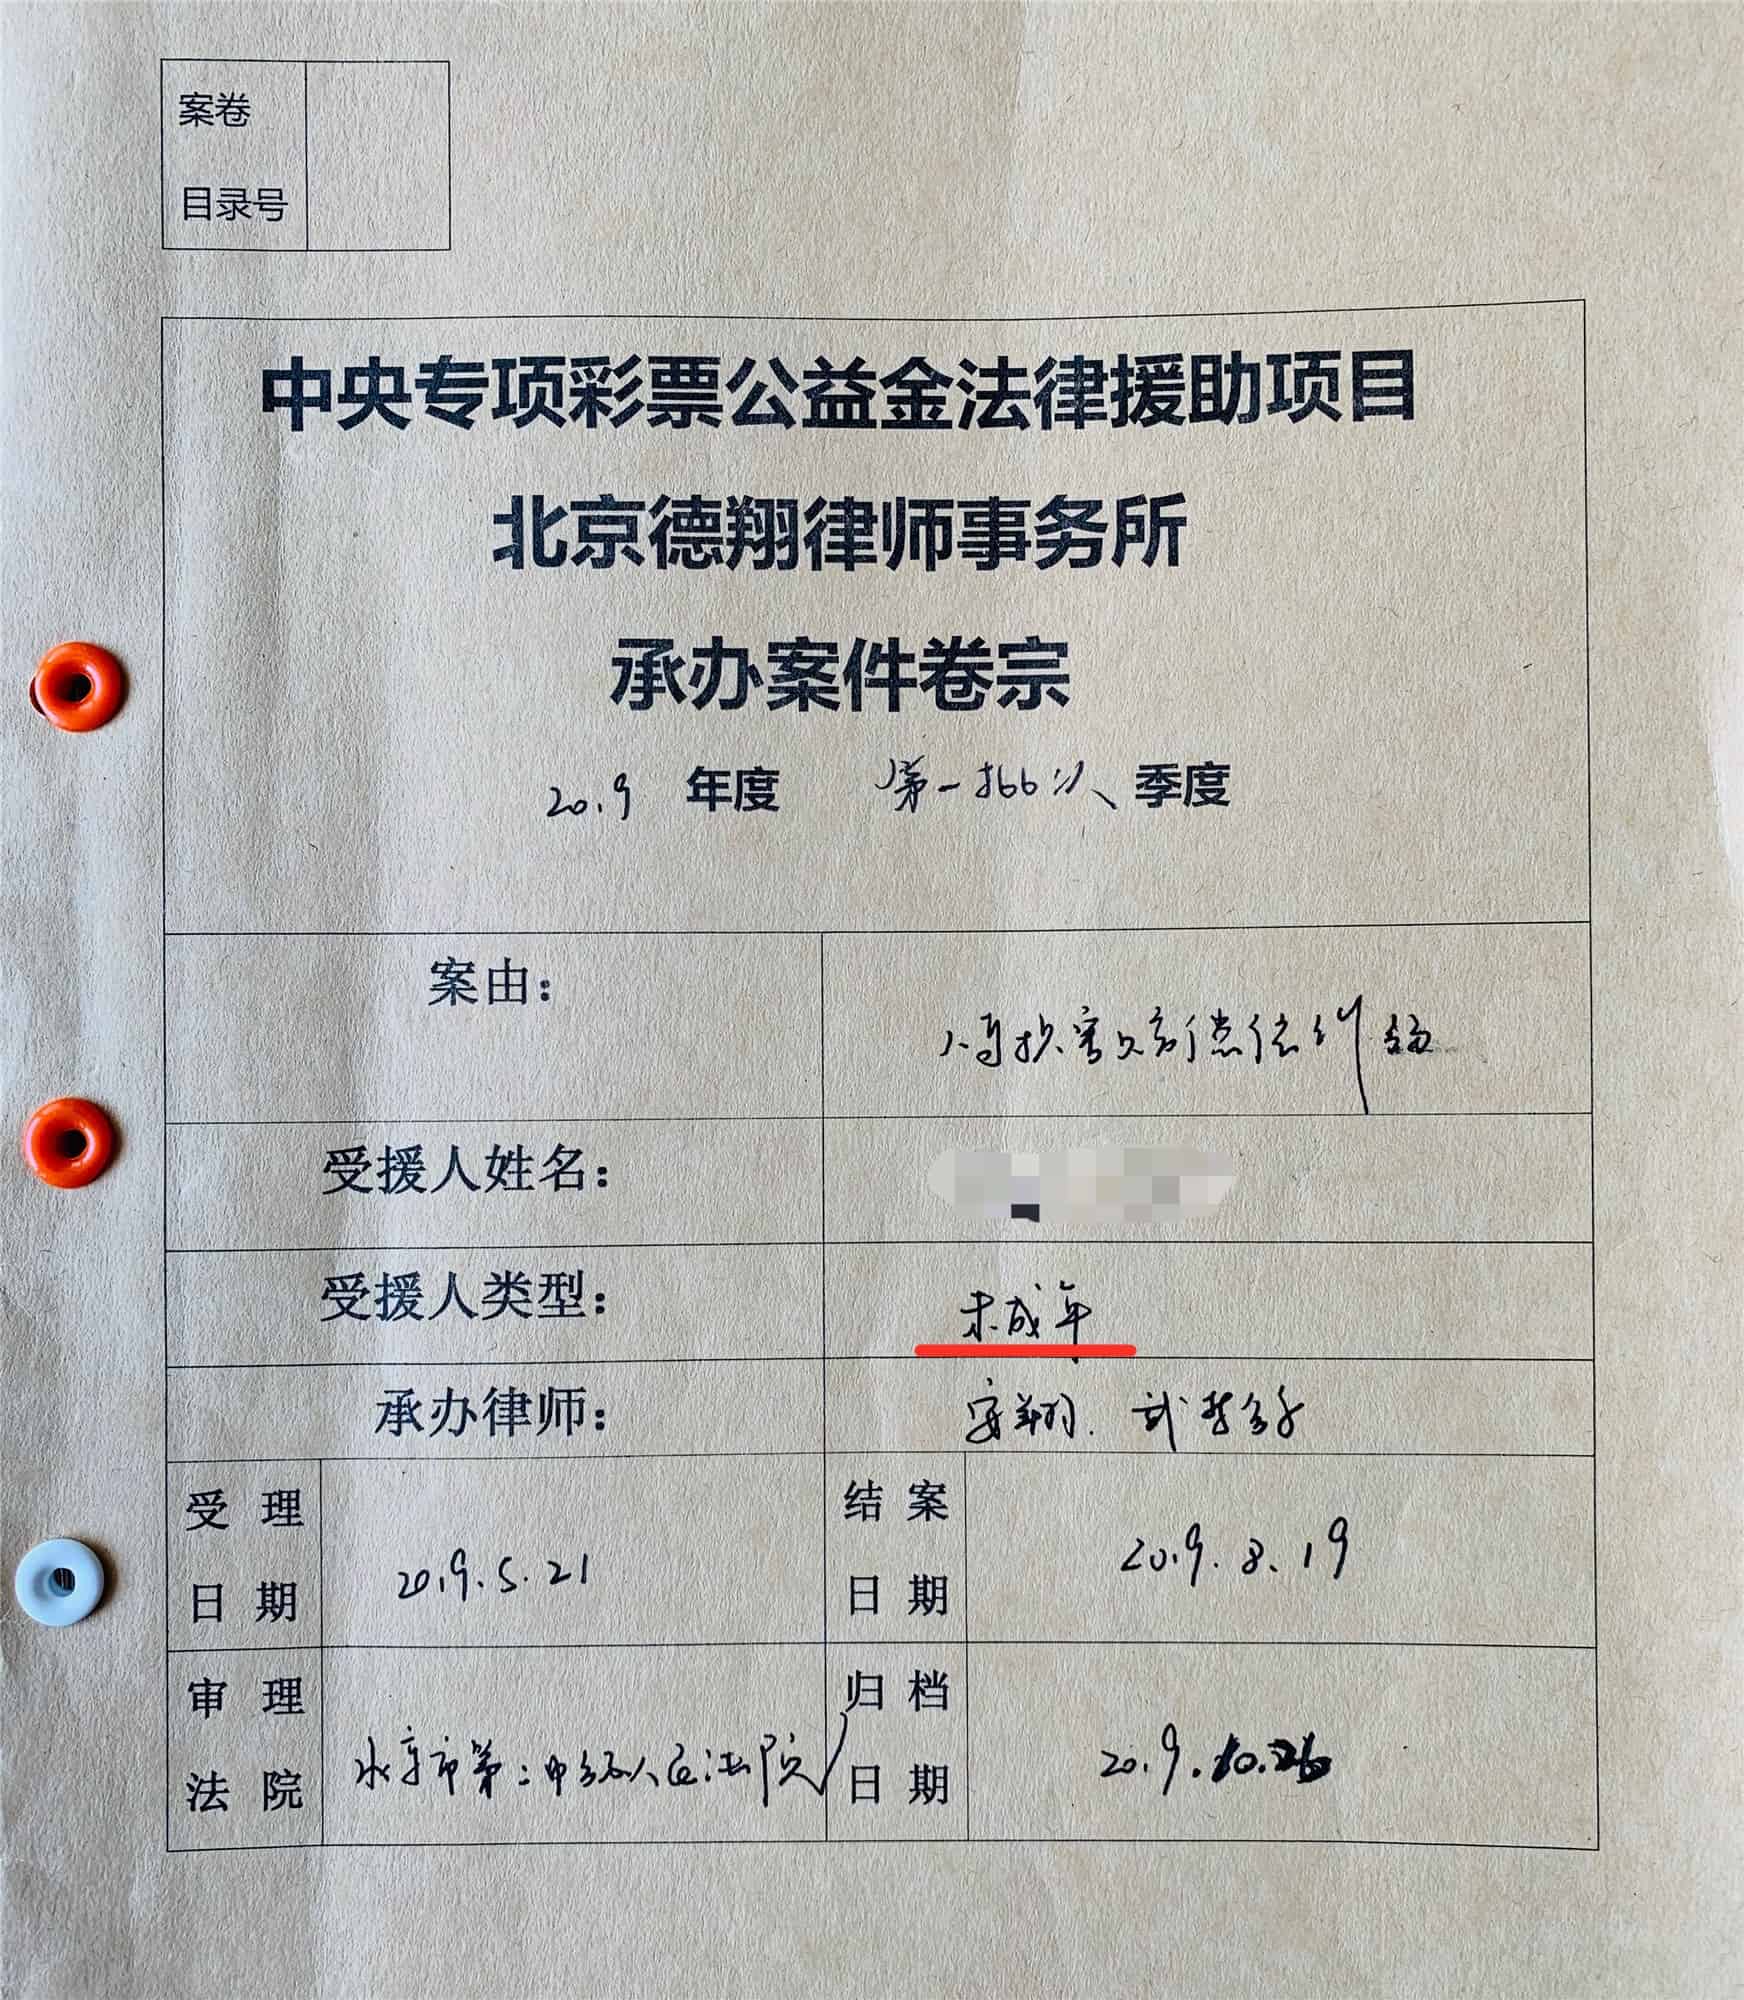 案卷
目录号
中央专项彩票公益金法律援助项目
北京德翔律师事务所
承办案件卷宗
2019 年度 第一批 季度
案由：
损害责任纠纷
受援人姓名：
受援人类型：
未成年
承办律师：
安翔、武
受理
日期
2019.5.21
结案
日期
2019.8.19
审理
法院
北京市第二中级人民法院
归档
日期
2019.10.26